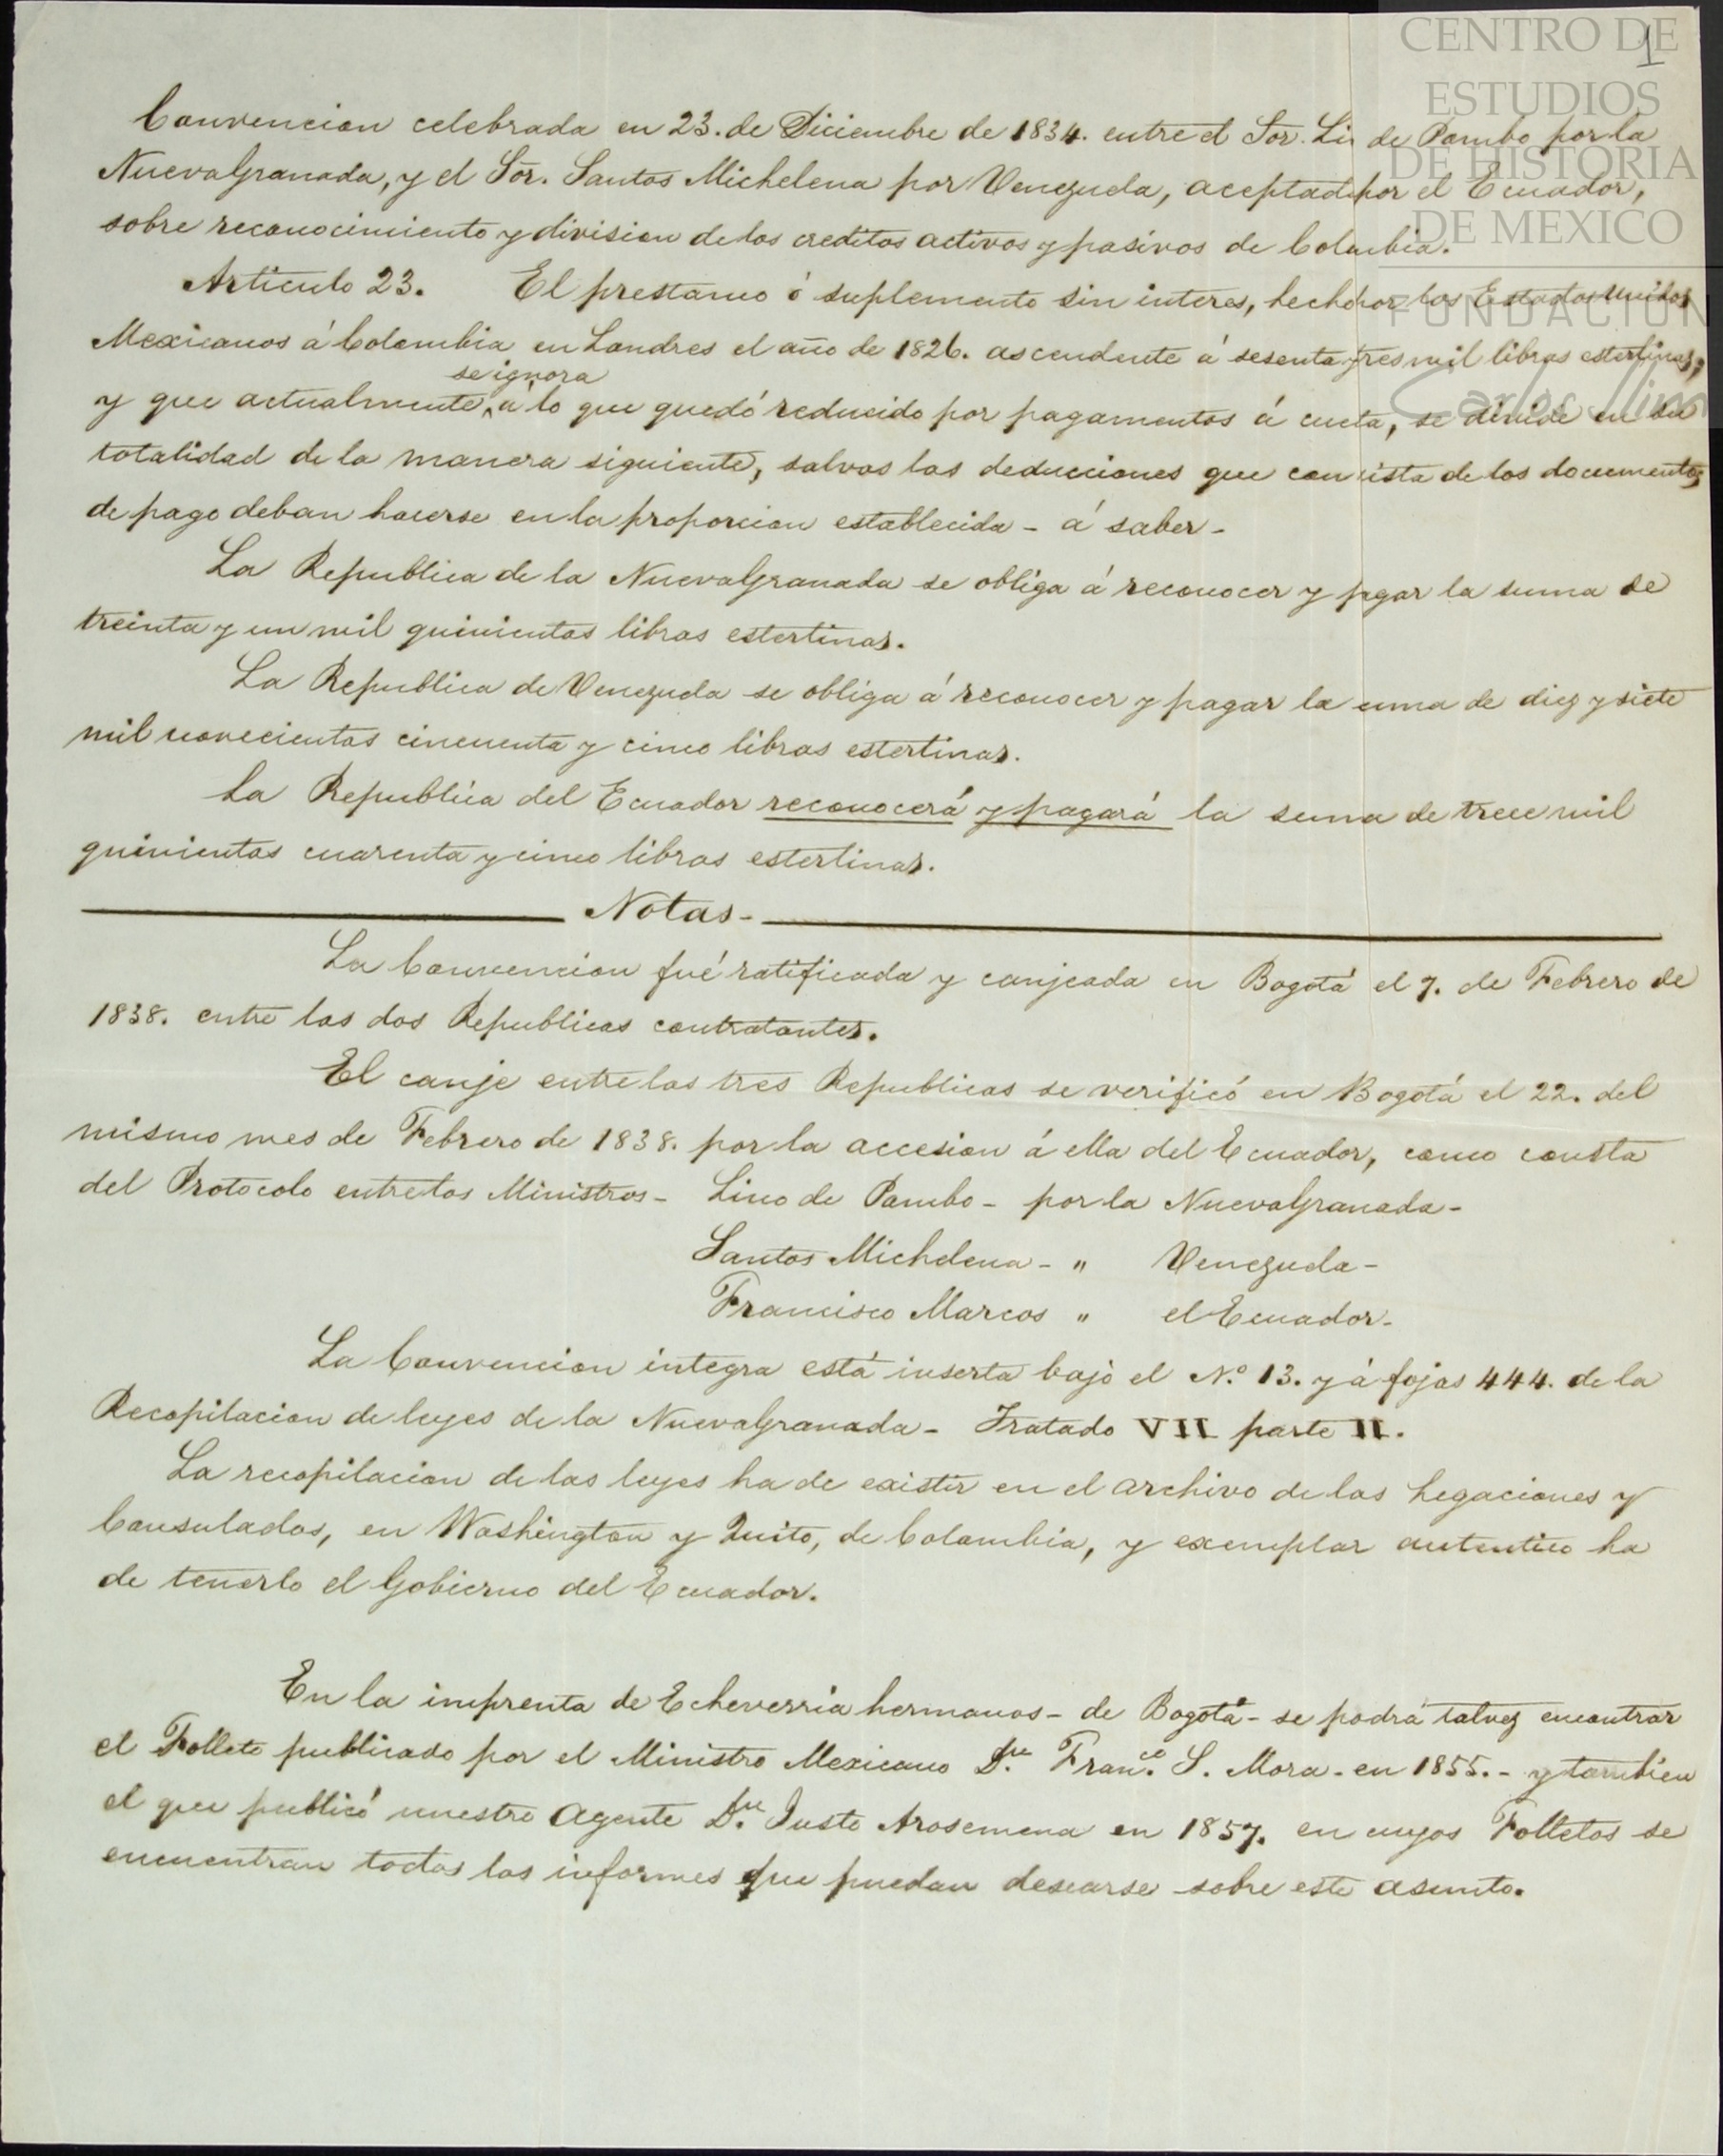 CENTRO DE
ESTUDIOS
DE HISTORIA
DE MEXICO
FUNDACION
Carlos Slim
1
Convencion celebrada en 23. de Diciembre de 1834. entre el Sor. Li de Pombo por la
Nueva Granada, y el Sōr. Santos Michelena por Venezuela, aceptad por el Ecuador,
sobre reconocimiento y division de los creditos activos y pasivos de Colombia.
Articulo 23. El prestamo ó suplemento sin interes, hecho por los Estados Unidos
Mexicanos á Colombia en Londres el año de 1826. ascendente á sesenta y tres mil libras esterlinas,
se ignora
y que actualmente ^ á lo que quedó reducido por pagamentos á cueta, se divide en su
totalidad de la manera siguiente, salvas las deducciones que con vista de los documentos
de pago deban hacerse en la proporcion establecida - á saber -
La Republica de la Nueva Granada se obliga á reconocer y pagar la suma de
treinta y un mil quinientas libras esterlinas.
La Republica de Venezuela se obliga á reconocer y pagar la suma de diez y siete
mil novecientas cincuenta y cinco libras esterlinas.
La Republica del Ecuador reconocerá y pagará la suma de trece mil
quinientas cuarenta y cinco libras esterlinas.
Notas -
La Convencion fué ratificada y canjeada en Bogotá el 7. de Febrero de
1838. entre las dos Republicas contratantes.
El canje entre las tres Republicas se verificó en Bogotá el 22. del
mismo mes de Febrero de 1838. por la accesion á ella del Ecuador, como consta
del Protocolo entre los Ministros - Lino de Pombo - por la Nueva Granada -
Santos Michelena - " Venezuela -
Francisco Marcos " el Ecuador -
La Convencion integra está inserta bajo el N.º 13. y á fojas 444. de la
Recopilacion de leyes de la Nueva Granada - Tratado VII parte II.
La recopilacion de las leyes ha de existir en el archivo de las Legaciones y
Consulados, en Washington y Quito, de Colombia, y exemplar autentico ha
de tenerlo el Gobierno del Ecuador.
En la imprenta de Echeverria hermanos - de Bogotá - se podrá talvez encontrar
el Folleto publicado por el Ministro Mexicano D.n Fran.co S. Mora - en 1855. - y tambien
el que publicó nuestro Agente D.n Justo Arosemena en 1857. en cuyos Folletos se
encuentran todos los informes que puedan desearse sobre este asunto.